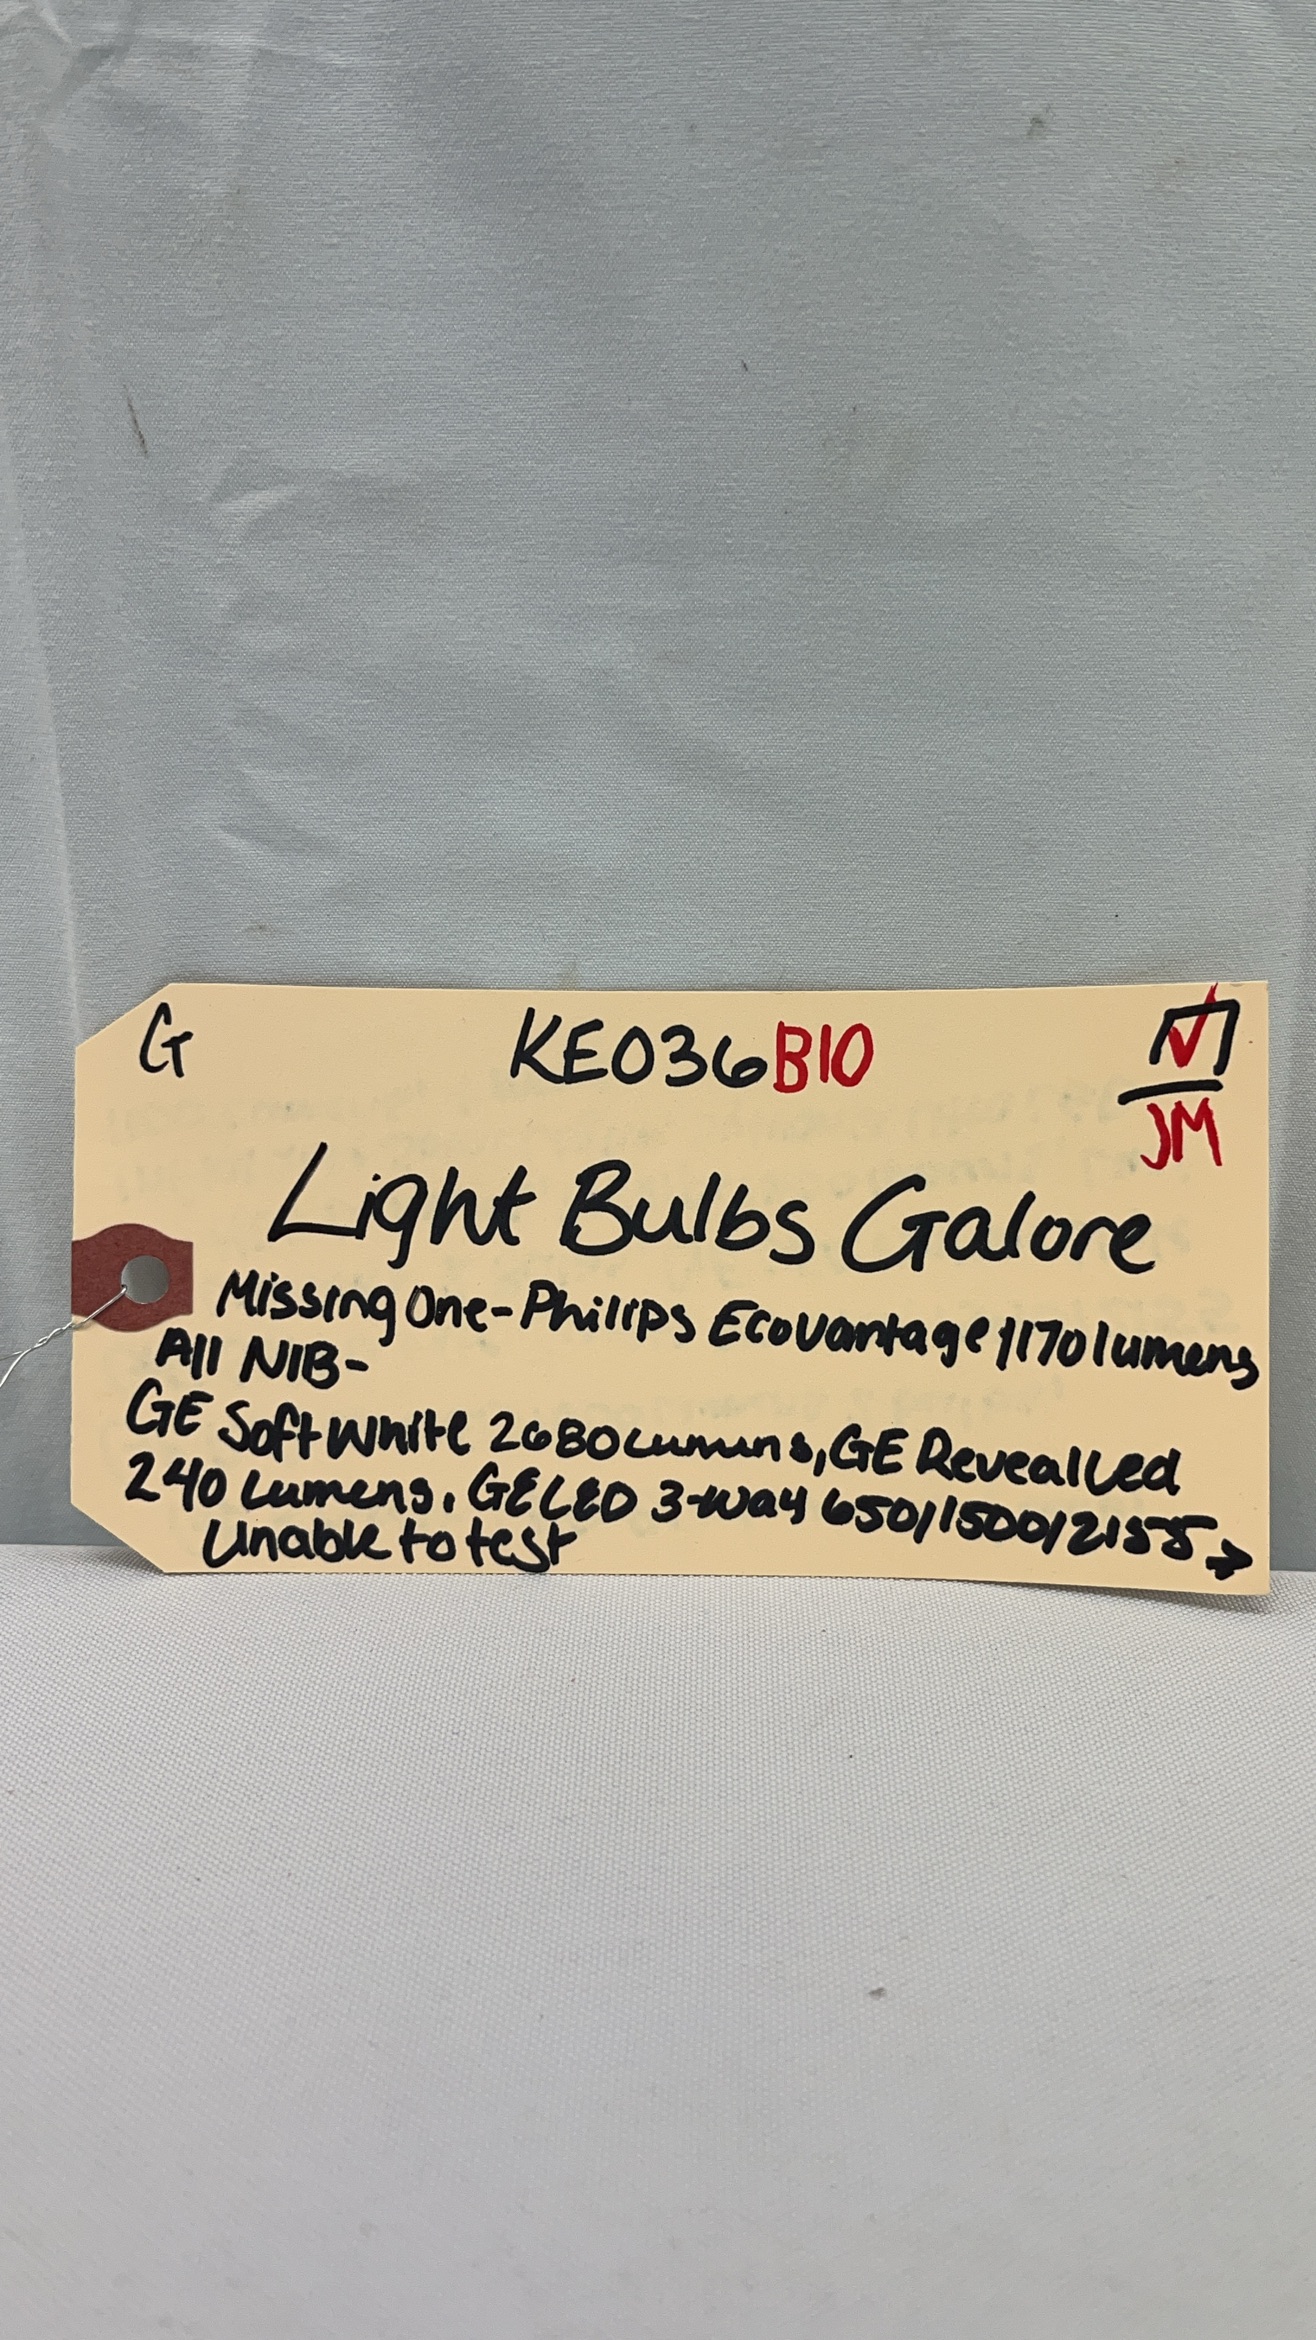 G KE036B10
JM
Light Bulbs Galore
Missing One-Philips EcoVantage 1170 lumens
All NIB-
GE Soft White 2680 Lumens, GE Reveal Led
240 Lumens, GE LED 3-Way 650/1500/2155 →
Unable to test